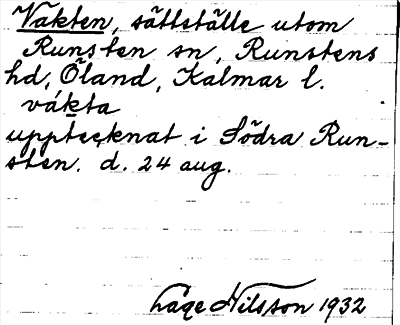 Vakten, sättställe utom
Runsten sn, Runstens
hd, Öland, Kalmar l.
vákta
upptecknat i Södra Run-
sten. d. 24 aug.
Låge Nilsson 1932